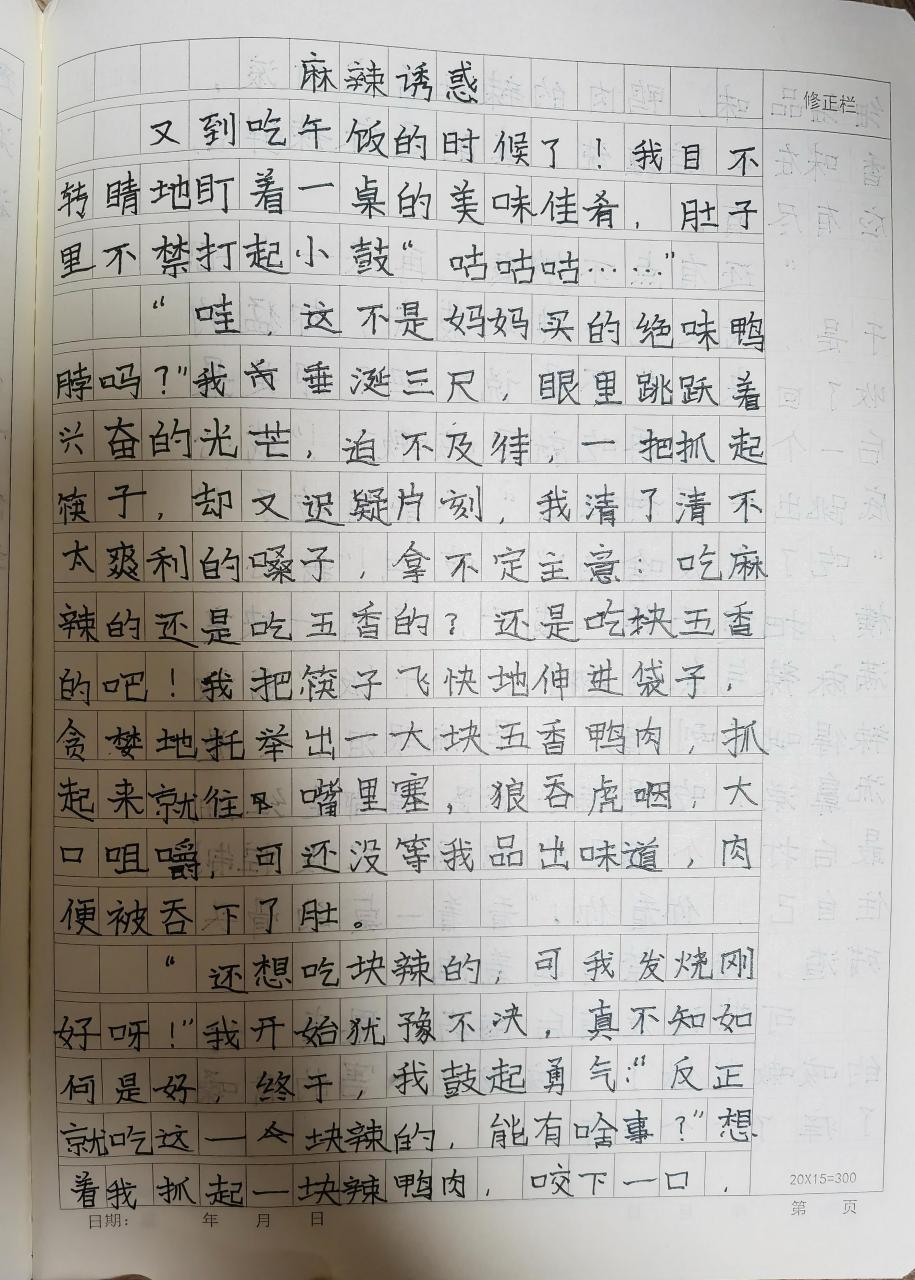 麻辣诱惑
修正栏
又到吃午饭的时候了！我目不
转睛地盯着一桌的美味佳肴，肚子
里不禁打起小鼓“咕咕咕……”
“哇，这不是妈妈买的绝味鸭
脖吗？”我垂涎三尺，眼里跳跃着
兴奋的光芒，迫不及待，一把抓起
筷子，却又迟疑片刻，我清了清不
太爽利的嗓子，拿不定主意：吃麻
辣的还是吃五香的？还是吃块五香
的吧！我把筷子飞快地伸进袋子，
贪婪地托举出一大块五香鸭肉，抓
起来就往嘴里塞，狼吞虎咽，大
口咀嚼，可还没等我品出味道，肉
便被吞下了肚。
“还想吃块辣的，可我发烧刚
好呀！”我开始犹豫不决，真不知如
何是好，终于，我鼓起勇气：“反正
就吃这一块辣的，能有啥事？”想
着我抓起一块辣鸭肉，咬下一口，
20X15=300
日期： 年 月 日 第 页